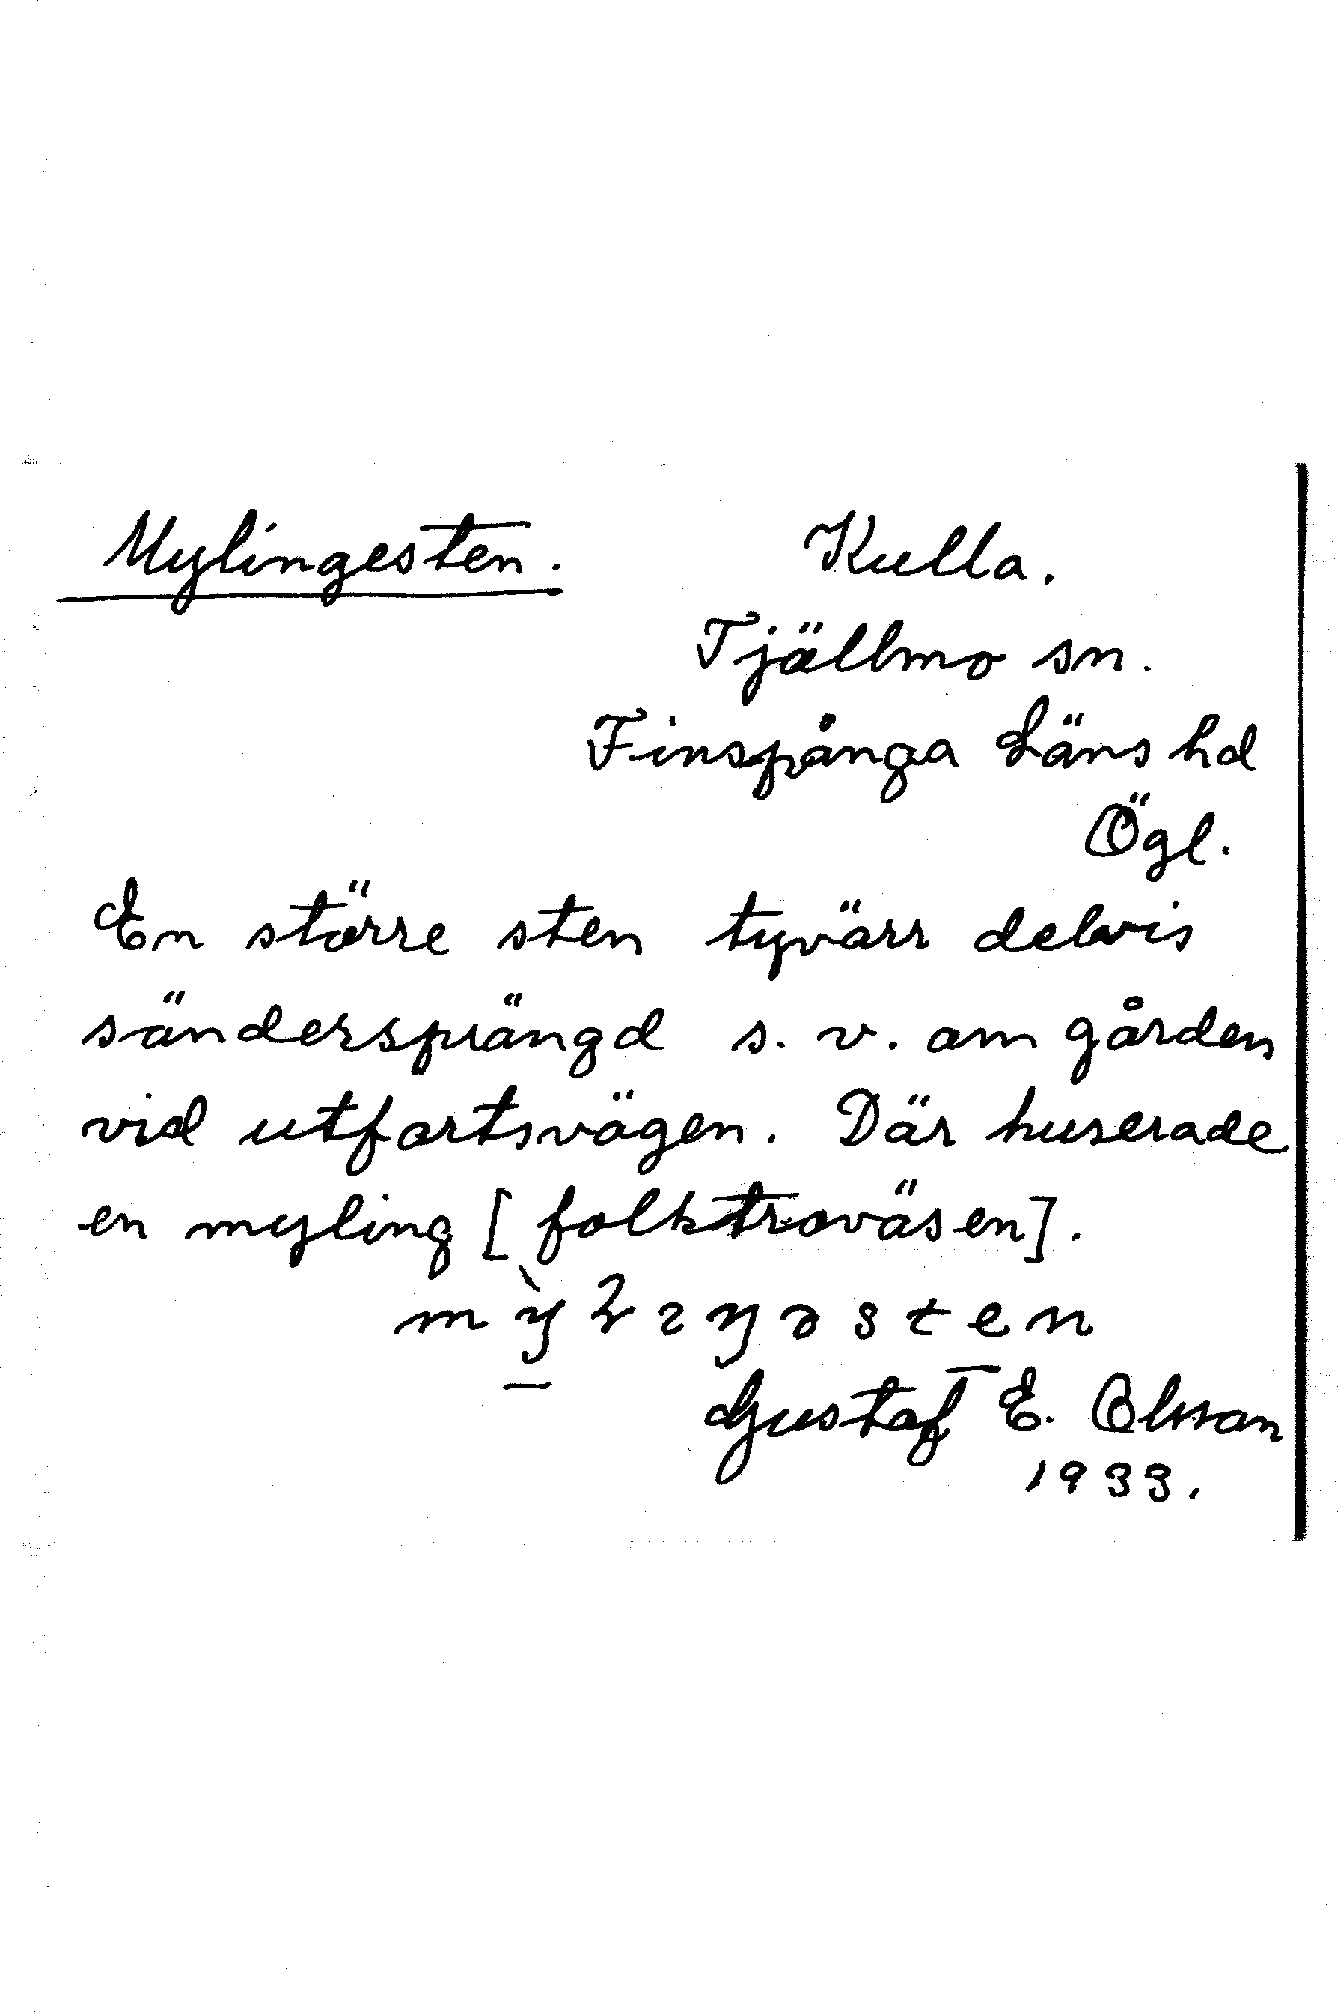 Mylingesten. Kulla.
Tjällmo sn.
Finspånga Läns hd
Ögl.
En större sten tyvärr delvis
söndersprängd s. v. om gården
vid utfartsvägen. Där huserade
en myling [folktroväsen].
Gustaf E. Olsson
1933.